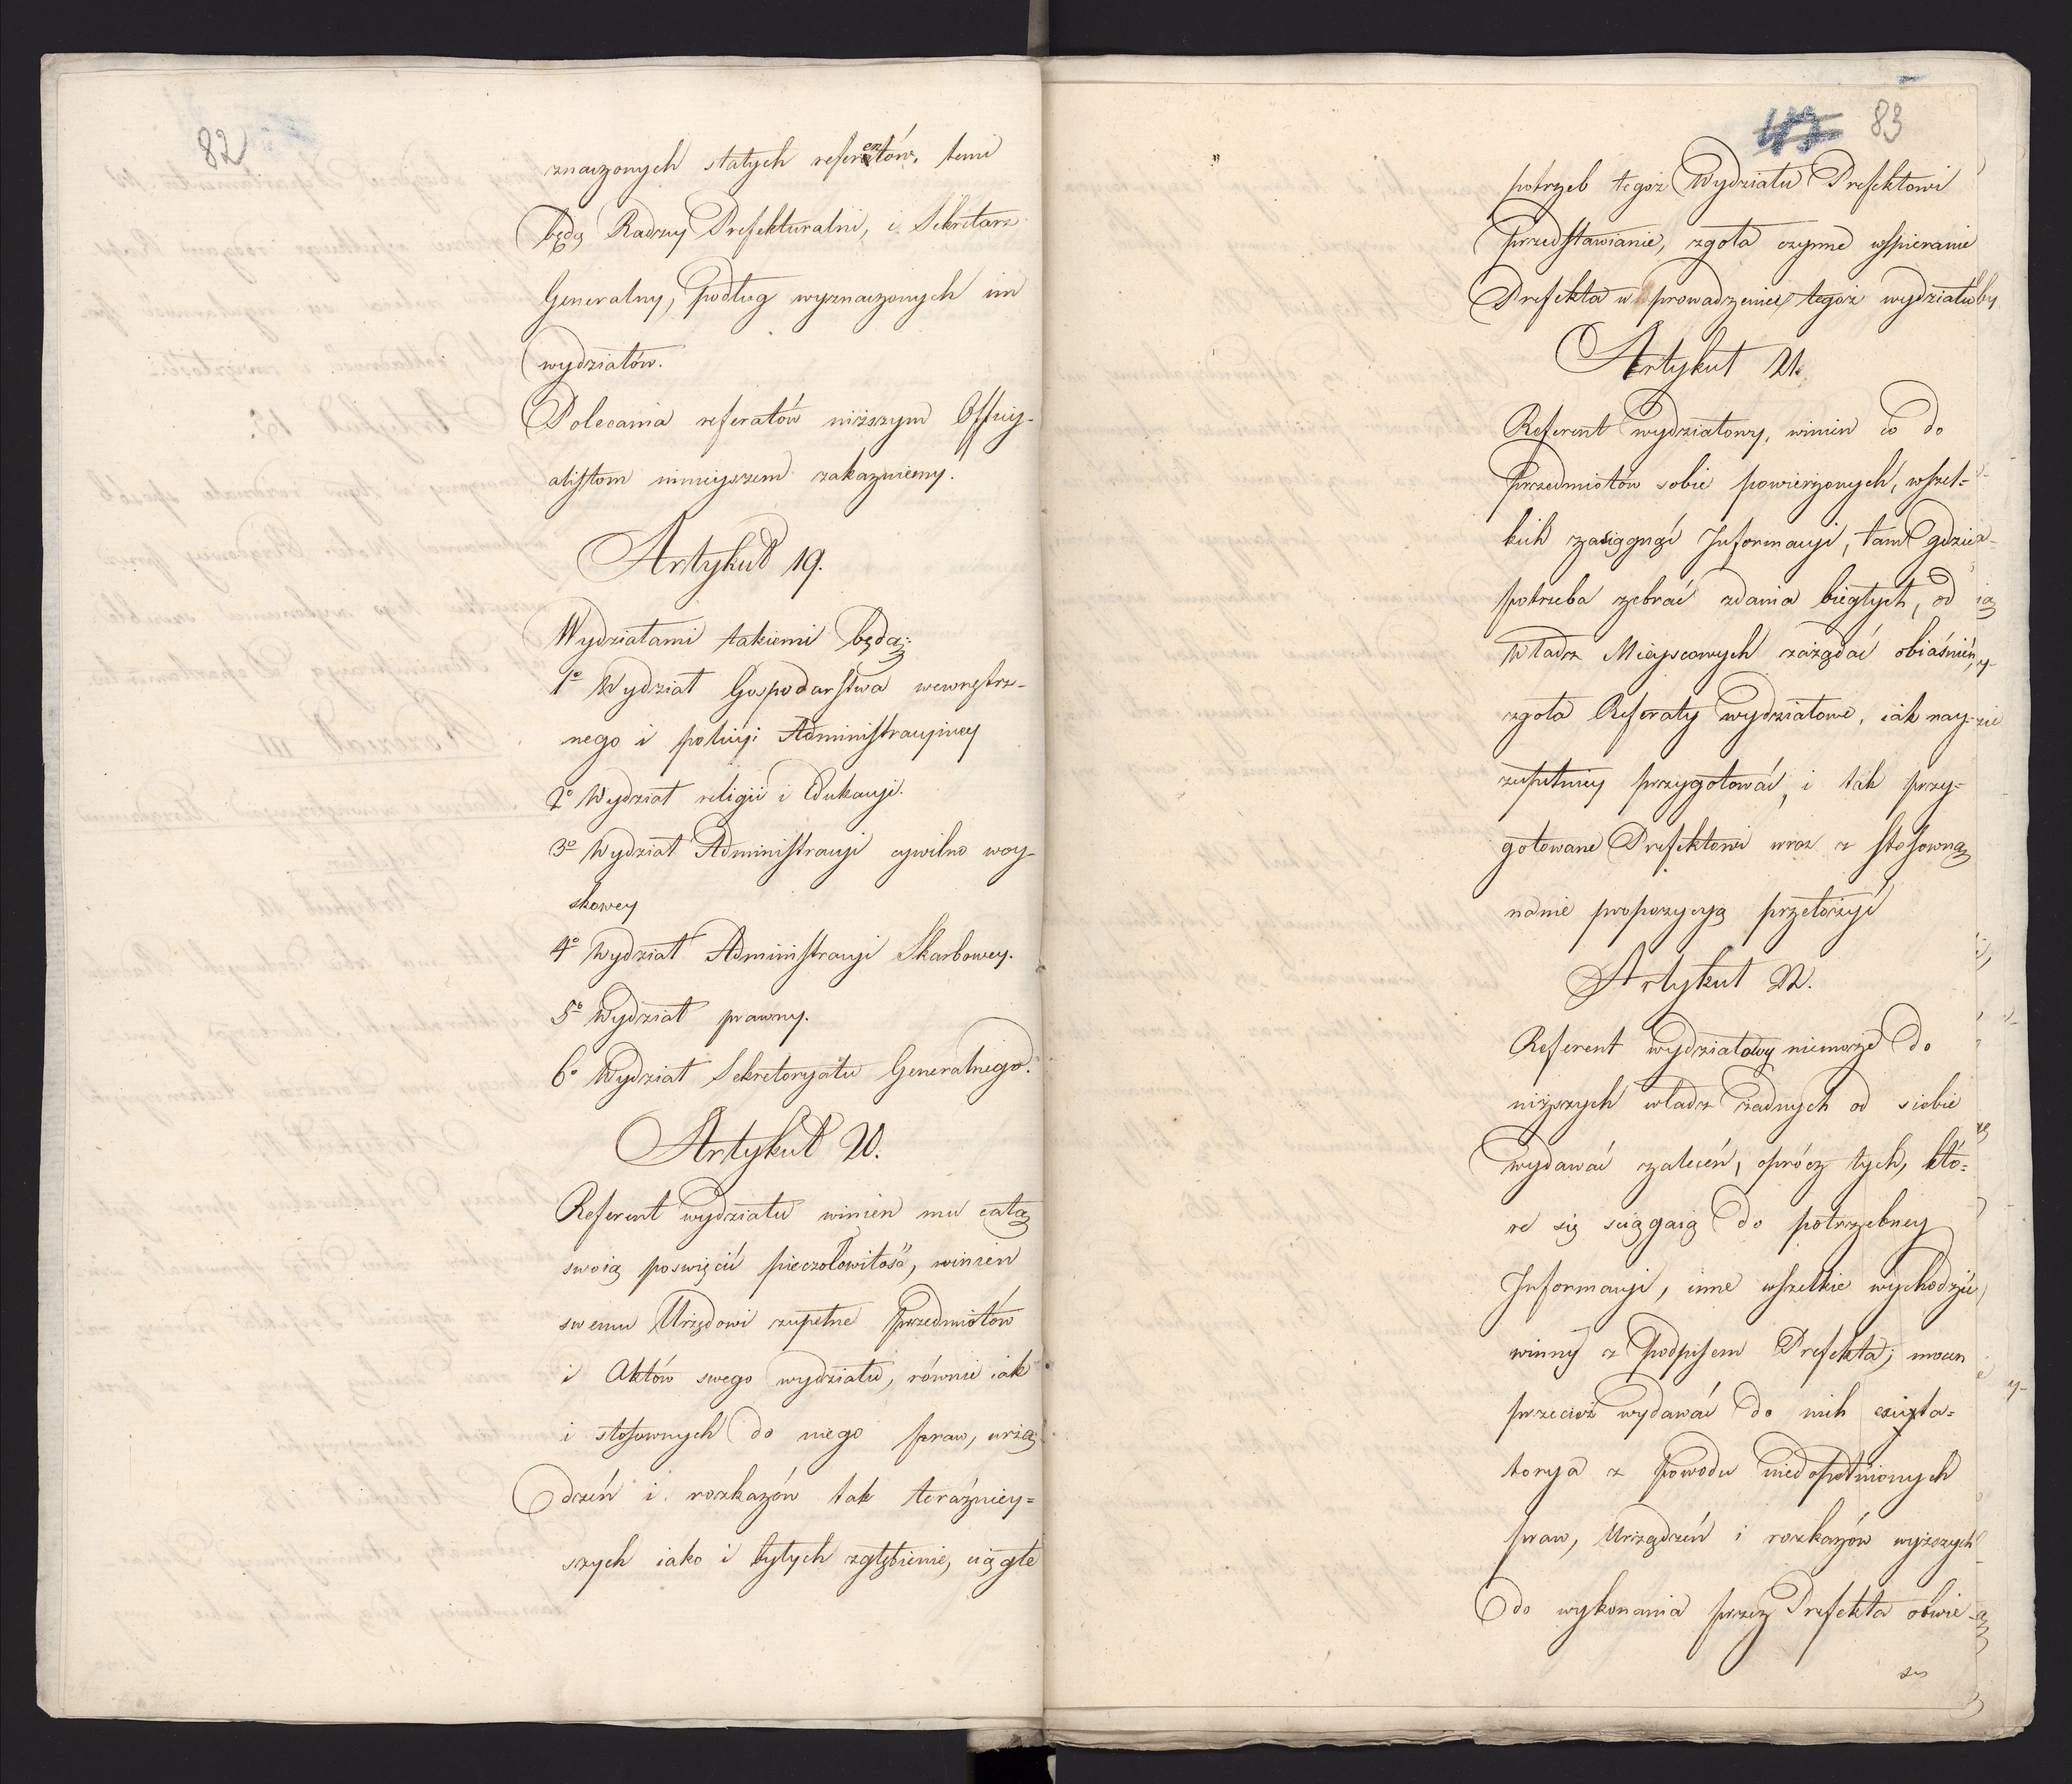 82
znaczonych stałych referentów, temi
będą Radzcy Prefekturalni, i Sekretarz
Generalny, podług wyznaczonych im
wydziałów.
Polecania referatów niższym Officy-
alistom ninieyszem zakazuiemy.
Artykuł 19.
Wydziałami takiemi będą:
1º Wydział Gospodarstwa wewnętrz-
nego i policyi Administracyiney
2º Wydział religii i Edukacyi.
3º Wydział Administracyi cywilno woy-
skowey
4º Wydział Administracyi Skarbowey.
5º Wydział prawny.
6º Wydział Sekretaryatu Generalnego.
Artykuł 20.
Referent wydziału winien mu całą
swoią poswięcić pieczołowitość, winien
swemu Urzędowi zupełne przedmiotów
i Aktów swego wydziału, równie iak
i stosownych do niego praw, urzą
dzeń i rozkazów tak teraźniey=
szych iako i byłych zgłębienie, ciągłe
47 83
potrzeb tegoż Wydziału Prefektowi
przedstawianie, zgoła czynne wspieranie
Prefekta w prowadzeniu tegoż wydziału
Artykuł 21.
Referent wydziałowy, winien co do
przedmiotów sobie powierzonych, wszel=
kich zasięgnąć Informacyi, tam gdzie
potrzeba zebrać zdania biegłych, od
Władz Mieyscowych zażądać obiaśnień,
zgoła Referaty wydziałowe, iak nay-
zupełniey przygotować, i tak przy=
gotowane Prefektowi wraz z stosowną
nadnie propozycyą przełożyć
Artykuł 22.
Referent wydziałowy niemoże do
niższych władz żadnych od siebie
wydawać zaleceń, oprócz tych, któ=
re się sciągaią do potrzebney
Informacyi, inne wszelkie wychodzić
winny z podpisem Prefekta; mocen
przecież wydawać do nich excyta=
torya z powodu niedopełnionych
praw, Urządzeń i rozkazów wyższych
do wykonania przez Prefekta obwie